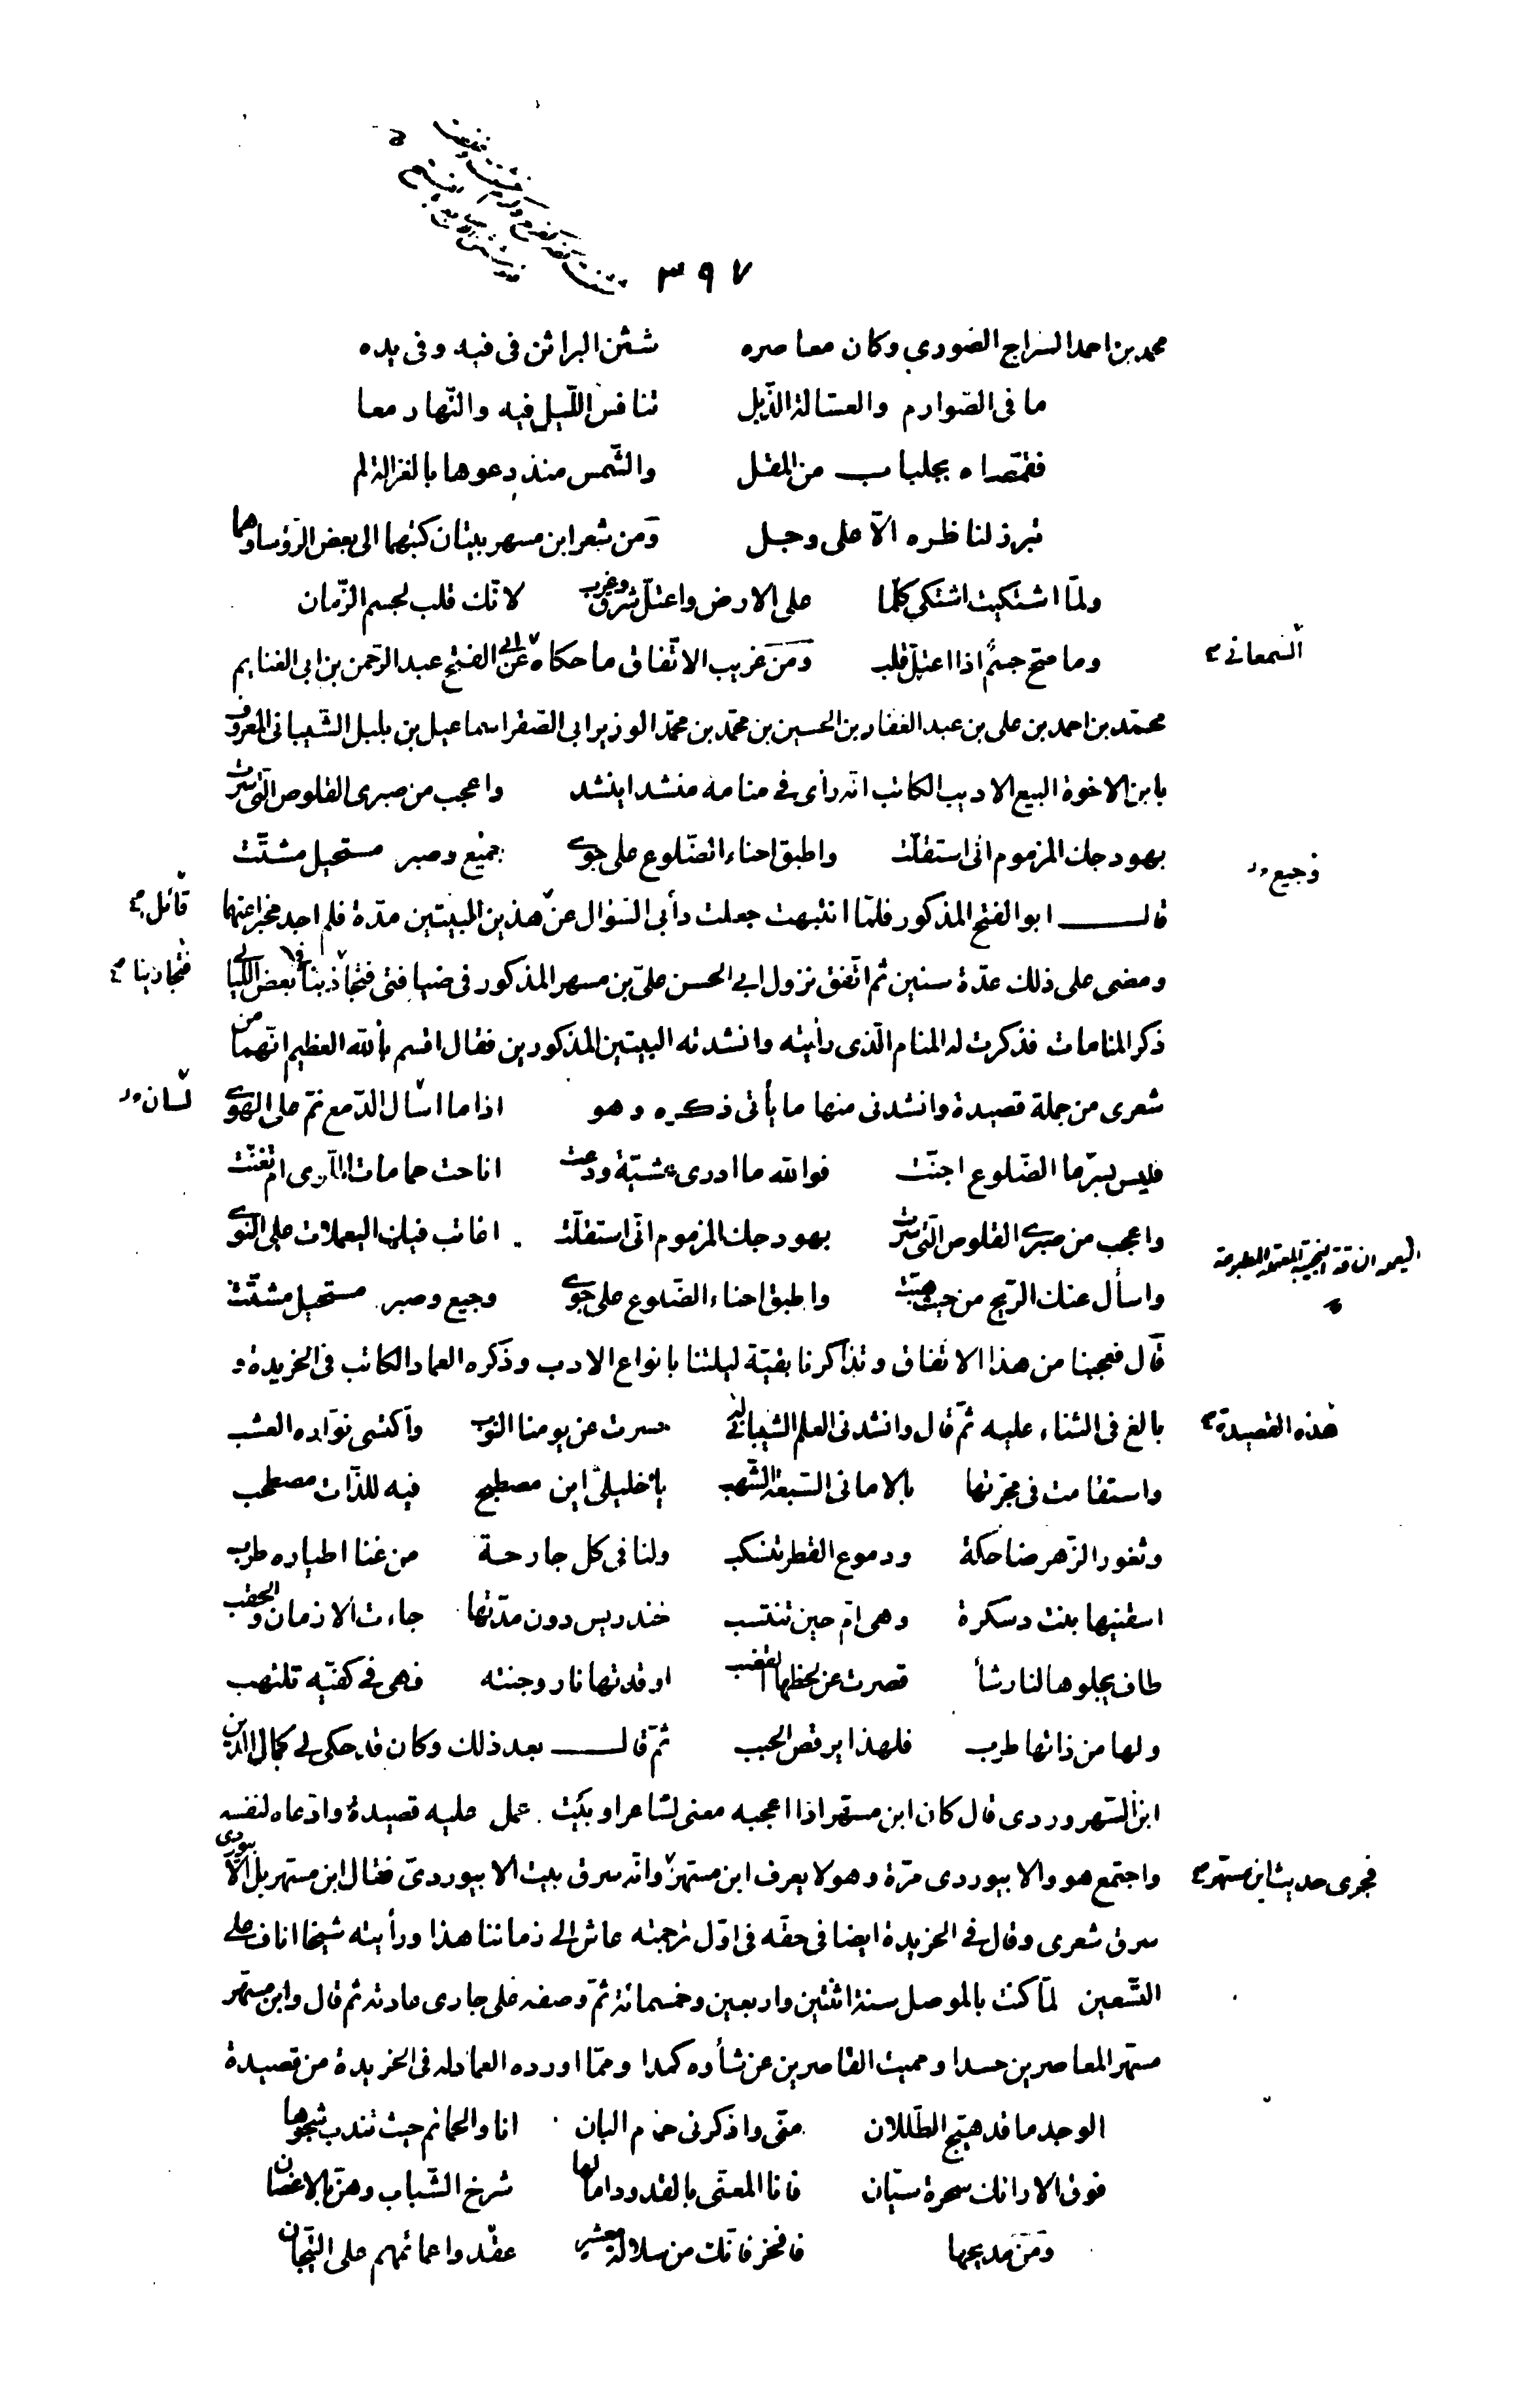 ٣٩٧
محمد بن احمد السراج الصوري وكان معاصره شثن البراثن فى فيه وفى يده
ما فى الصّوارم والعسّالة الذّبل تنافس اللّيل فيه والنّهار معا
فقمّصاه بجلباب من المقل والشّمس منذ دعوها بالغزالة لم
تبرز لناظره الّا على وجل ومن شعر ابن مسهر بيتان كتبهما الى بعض الرّؤسا وهما
ولمّا اشتكيت اشتكى كلّما على الارض واعتلّ شرق وغرب لانّك قلب لجسم الزّمان
وما صحّ جسمٌ اذا اعتلّ قلب ومن غريب الاتّفاق ما حكاه عن ابى الفتح عبد الرّحمن بن ابى الغنايم
السّمعانى
محمّد بن احمد بن على بن عبد الغفار بن الحسين بن محمّد بن محمّد الوزير ابى الصّقر اسماعيل بن بلبل الشّيبانى المعروف
بابن الاخوة البيع الاديب الكاتب انّه رأى فى منامه منشدا ينشد واعجب من صبرى القلوص الّتى سرت
بهودجك المزموم انّى استقلّت واطبق احناء الضّلوع على جوى جميع وصبر مستحيل مشتّت
وجيع
قال ابو الفتح المذكور فلمّا انتبهت جعلت دأبى السّؤال عن هذين البيتين مدّة فلم اجد مخبرا عنهما
قائل
ومضى على ذلك عدّة سنين ثم اتّفق نزول ابى الحسن علىّ بن مسهر المذكور فى ضيافتى فتجاذبنا فى بعض اللّيالى
فتجاذبنا
ذكر المنامات فذكرت له المنام الّذى رأيته وانشدته البيتين المذكورين فقال اقسم باللّه العظيم انّهما من
شعرى من جملة قصيدة وانشدنى منها ما يأتى ذكره وهو اذا ما اسال الدّمع نمّ على الهوى
لسان
فليس بسرّ ما الضّلوع اجنّت فواللّه ما ادرى عشيّة ودّعت اناحت حمامات اللّوى ام تغنّت
واعجب من صبرى القلوص الّتى سرت بهودجك المزموم انّى استقلّت اعاتب فيك اليعملات على النّوى
اليعمله الناقة النجيبة المعتملة المطبوعة
واسأل عنك الرّيح من حيث هبّت واطبق احناء الضّلوع على جوى وجيع وصبر مستحيل مشتّت
قال فعجبنا من هذا الاتّفاق وتذاكرنا بقيّة ليلتنا بانواع الادب وذكره العماد الكاتب فى الخريدة و
بالغ فى الثناء عليه ثمّ قال وانشدنى العلم الشّيبانى له سرت عن يومنا النوب واكتسى نوّاره العشب
هذه القصيدة
واستقامت فى مجرّتها بالامانى السّبعة الشّهب يا خليلىّ اين مصطبح فيه للذّات مصطحب
وثغور الزّهر ضاحكة ودموع القطر تنسكب ولنا فى كل جارحة من غنا اطياره طرب
اسقنيها بنت دسكرة وهى امّ حين تنتسب خندريس دون مدّتها جاءت الازمان والحقب
طاف يجلوها لنا رشأ قصرت عن لحظها القضب اوقدتها نار وجنته فهى فى كفّيه تلتهب
ولها من ذاتها طرب فلهذا يرقص الحبب ثمّ قال بعد ذلك وكان قد حكى لى كمال الدّين
ابن السّهروردى قال كان ابن مسهر اذا اعجبه معنى لشاعر او بيت عمل عليه قصيدة وادّعاه لنفسه
واجتمع هو والابيوردى مرّة وهو لا يعرف ابن مسهر وانّه سرق بيت الابيوردىّ فقال ابن مسهر بل الابيوردى
فجرى حديث ابن مسهر
سرق شعرى وقال فى الخريدة ايضا فى حقّه فى اوّل ترجمته عاش الى زماننا هذا ورأيته شيخا اناف على
التّسعين لمّا كنت بالموصل سنة اثنتين واربعين وخمسمائة ثمّ وصفه على جارى عادته ثم قال وابن مسهر
مسهر المعاصرين حسدا ومميت القاصرين عن شأوه كمدا وممّا اورده العماد له فى الخريدة من قصيدة
الوجد ما قد هيّج الطّللان منّى واذكرنى حمام البان انا والحمائم حيث تندب شجوها
فوق الاراك سحرة سيّان فانا المعنّى بالقدود امالها شرخ الشّباب وهنّ بالاغصان
ومن مديحها فافخر فانّك من سلالة معشر عقدوا عمائمهم على التّيجان